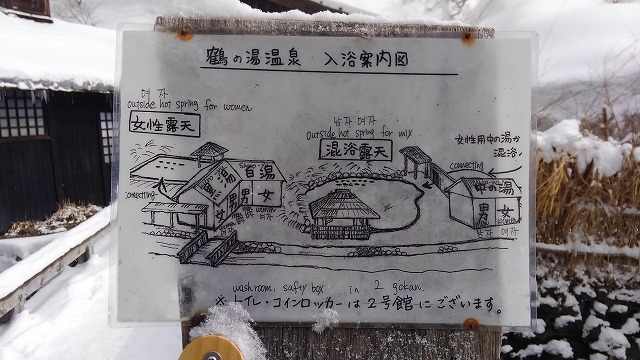 鶴の湯温泉 入浴案内図
여 자
outside hot spring for women
女性露天
남자 여자
outside hot spring for mix
混浴露天
女性用中の湯から
混浴へ
connecting
connecting
黒湯
白湯
男
女
男
女
women
여자
中の湯
男
女
women
남자 여자
washroom, safty box in 2 gokan.
※ トイレ・コインロッカーは2号館にございます。